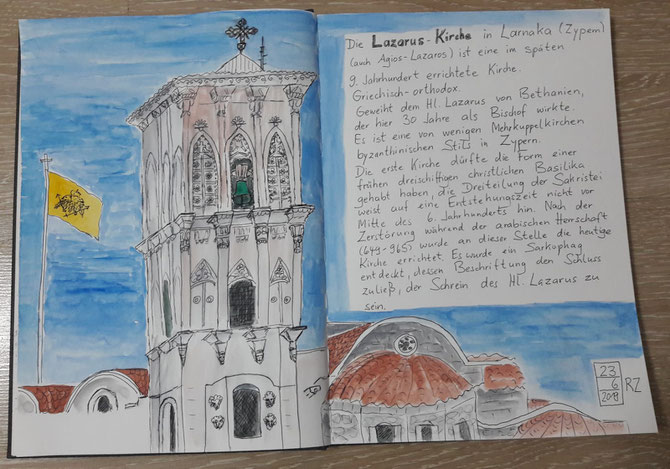 Die Lazarus-Kirche in Larnaka (Zypern)
(auch Agios-Lazaros) ist eine im späten
9. Jahrhundert errichtete Kirche.
Griechisch-orthodox.
Geweiht dem Hl. Lazarus von Bethanien,
der hier 30 Jahre als Bischof wirkte.
Es ist eine von wenigen Mehrkuppelkirchen
byzanthinischen Stils in Zypern.
Die erste Kirche dürfte die Form einer
frühen dreischiffigen christlichen Basilika
gehabt haben, die Dreiteilung der Sakristei
weist auf eine Entstehungszeit nicht vor
Mitte des 6. Jahrhunderts hin. Nach der
Zerstörung während der arabischen Herrschaft
(649-965) wurde an dieser Stelle die heutige
Kirche errichtet. Es wurde ein Sarkophag
entdeckt, dessen Beschriftung den Schluss
zuließ, der Schrein des Hl. Lazarus zu
sein.
23
6
2019
RZ